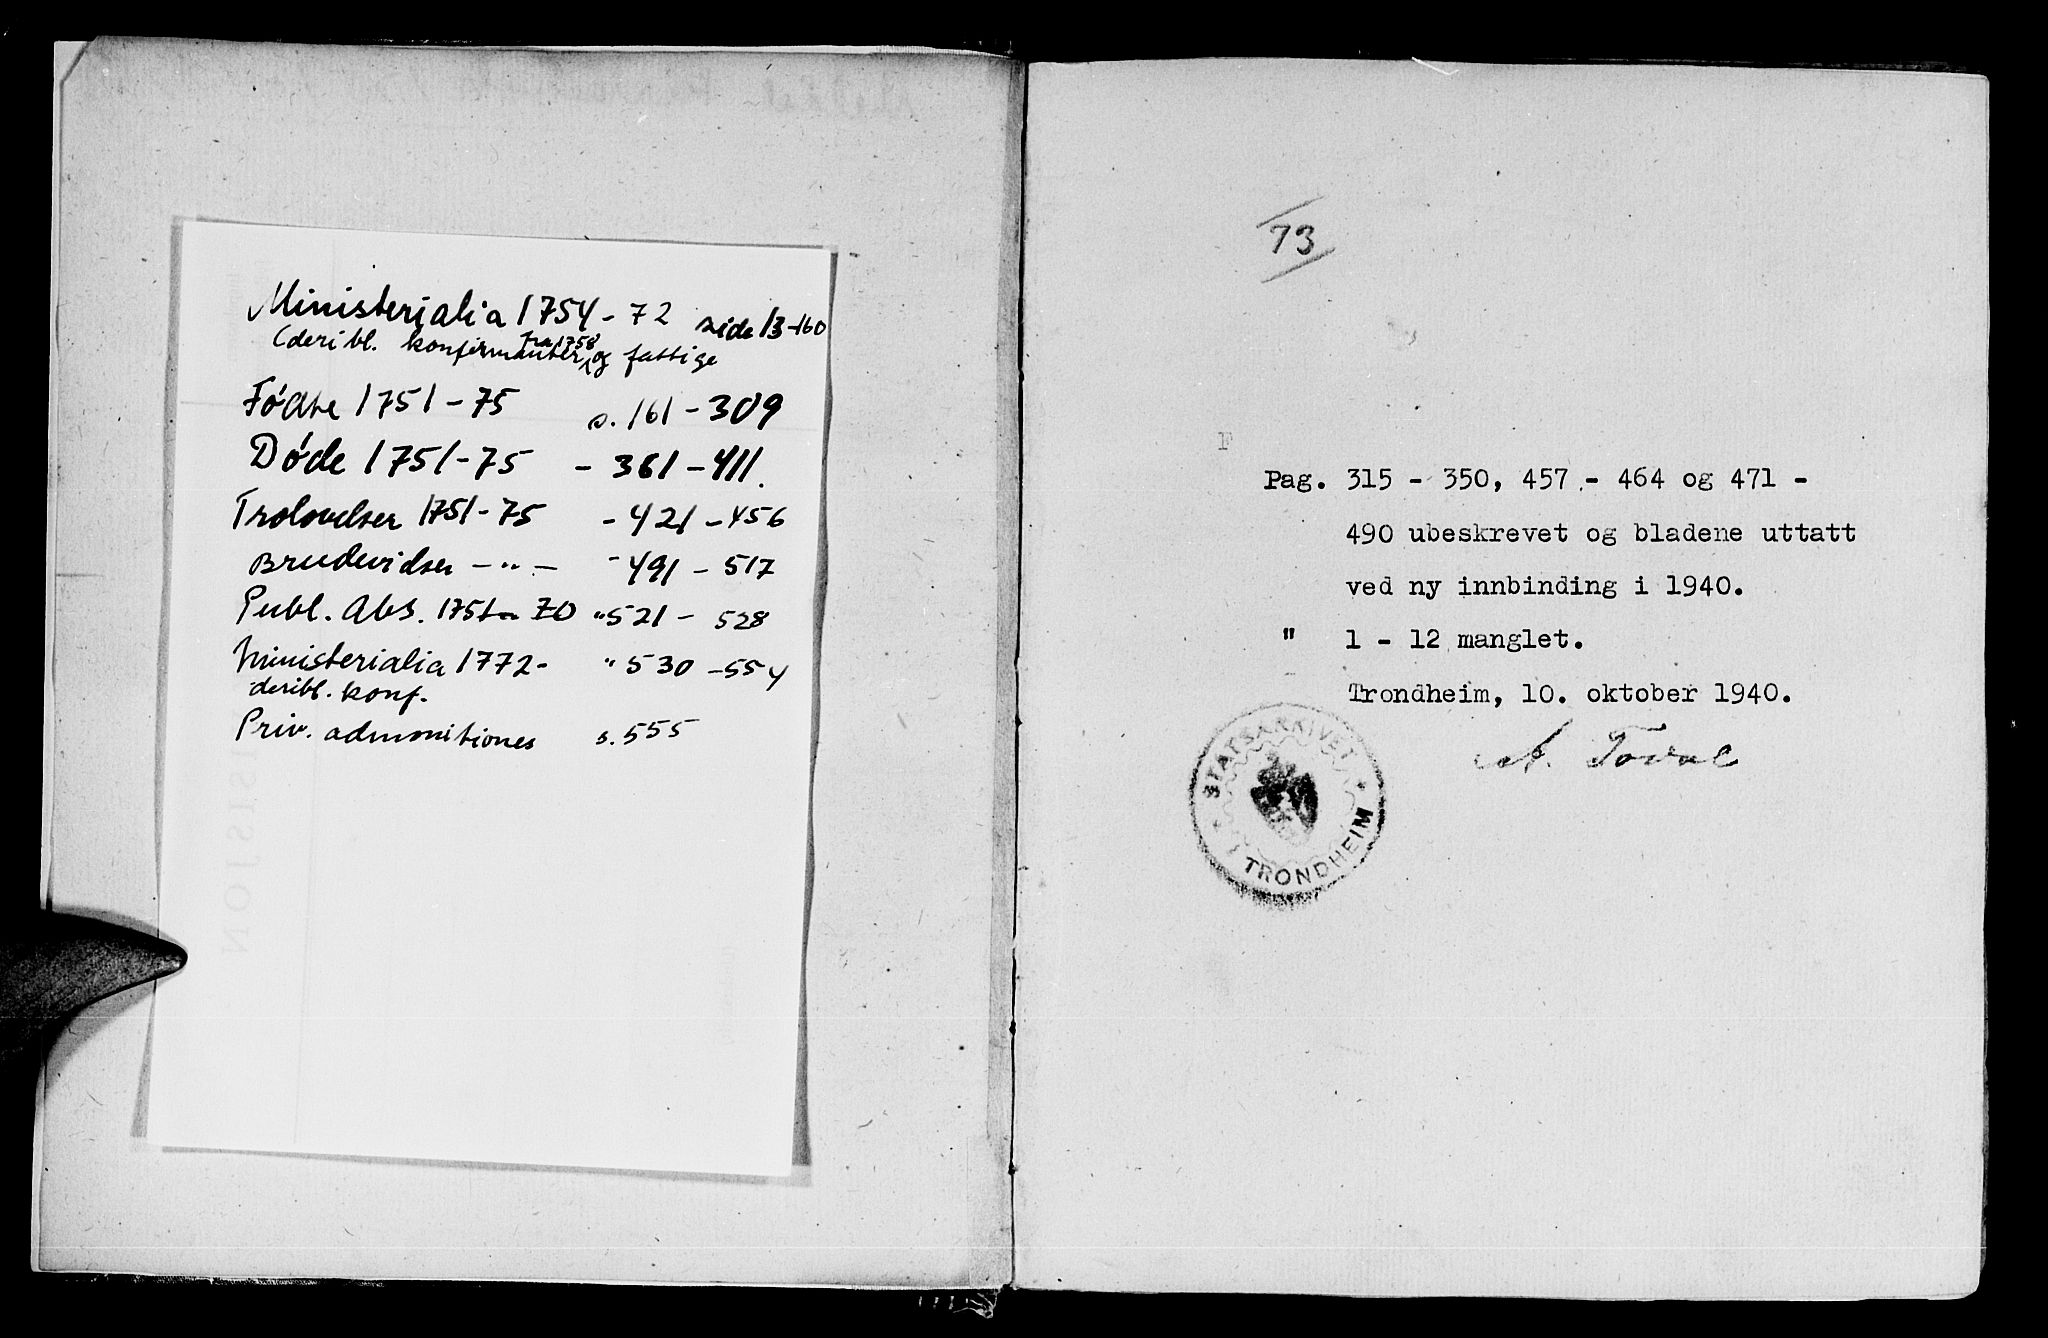 Ministerialia 1754-72 side 13-160
(deribl. konfirmanter fra 1758 og fattige
Fødte 1751-75 s. 161-309
Døde 1751-75 - 361-411.
Trolovelser 1751-75 - 421-456
Brudevidser -"- - 491-517
Publ. Abs. 1751-70 " 521-528
Ministerialia 1772- " 530-554
deribl. konf.
Priv. admonitiones s. 555
73
F
Pag. 315 - 350, 457 - 464 og 471 -
490 ubeskrevet og bladene uttatt
ved ny innbinding i 1940.
" 1 - 12 manglet.
Trondheim, 10. oktober 1940.
A.
STATSARKIVET I TRONDHEIM